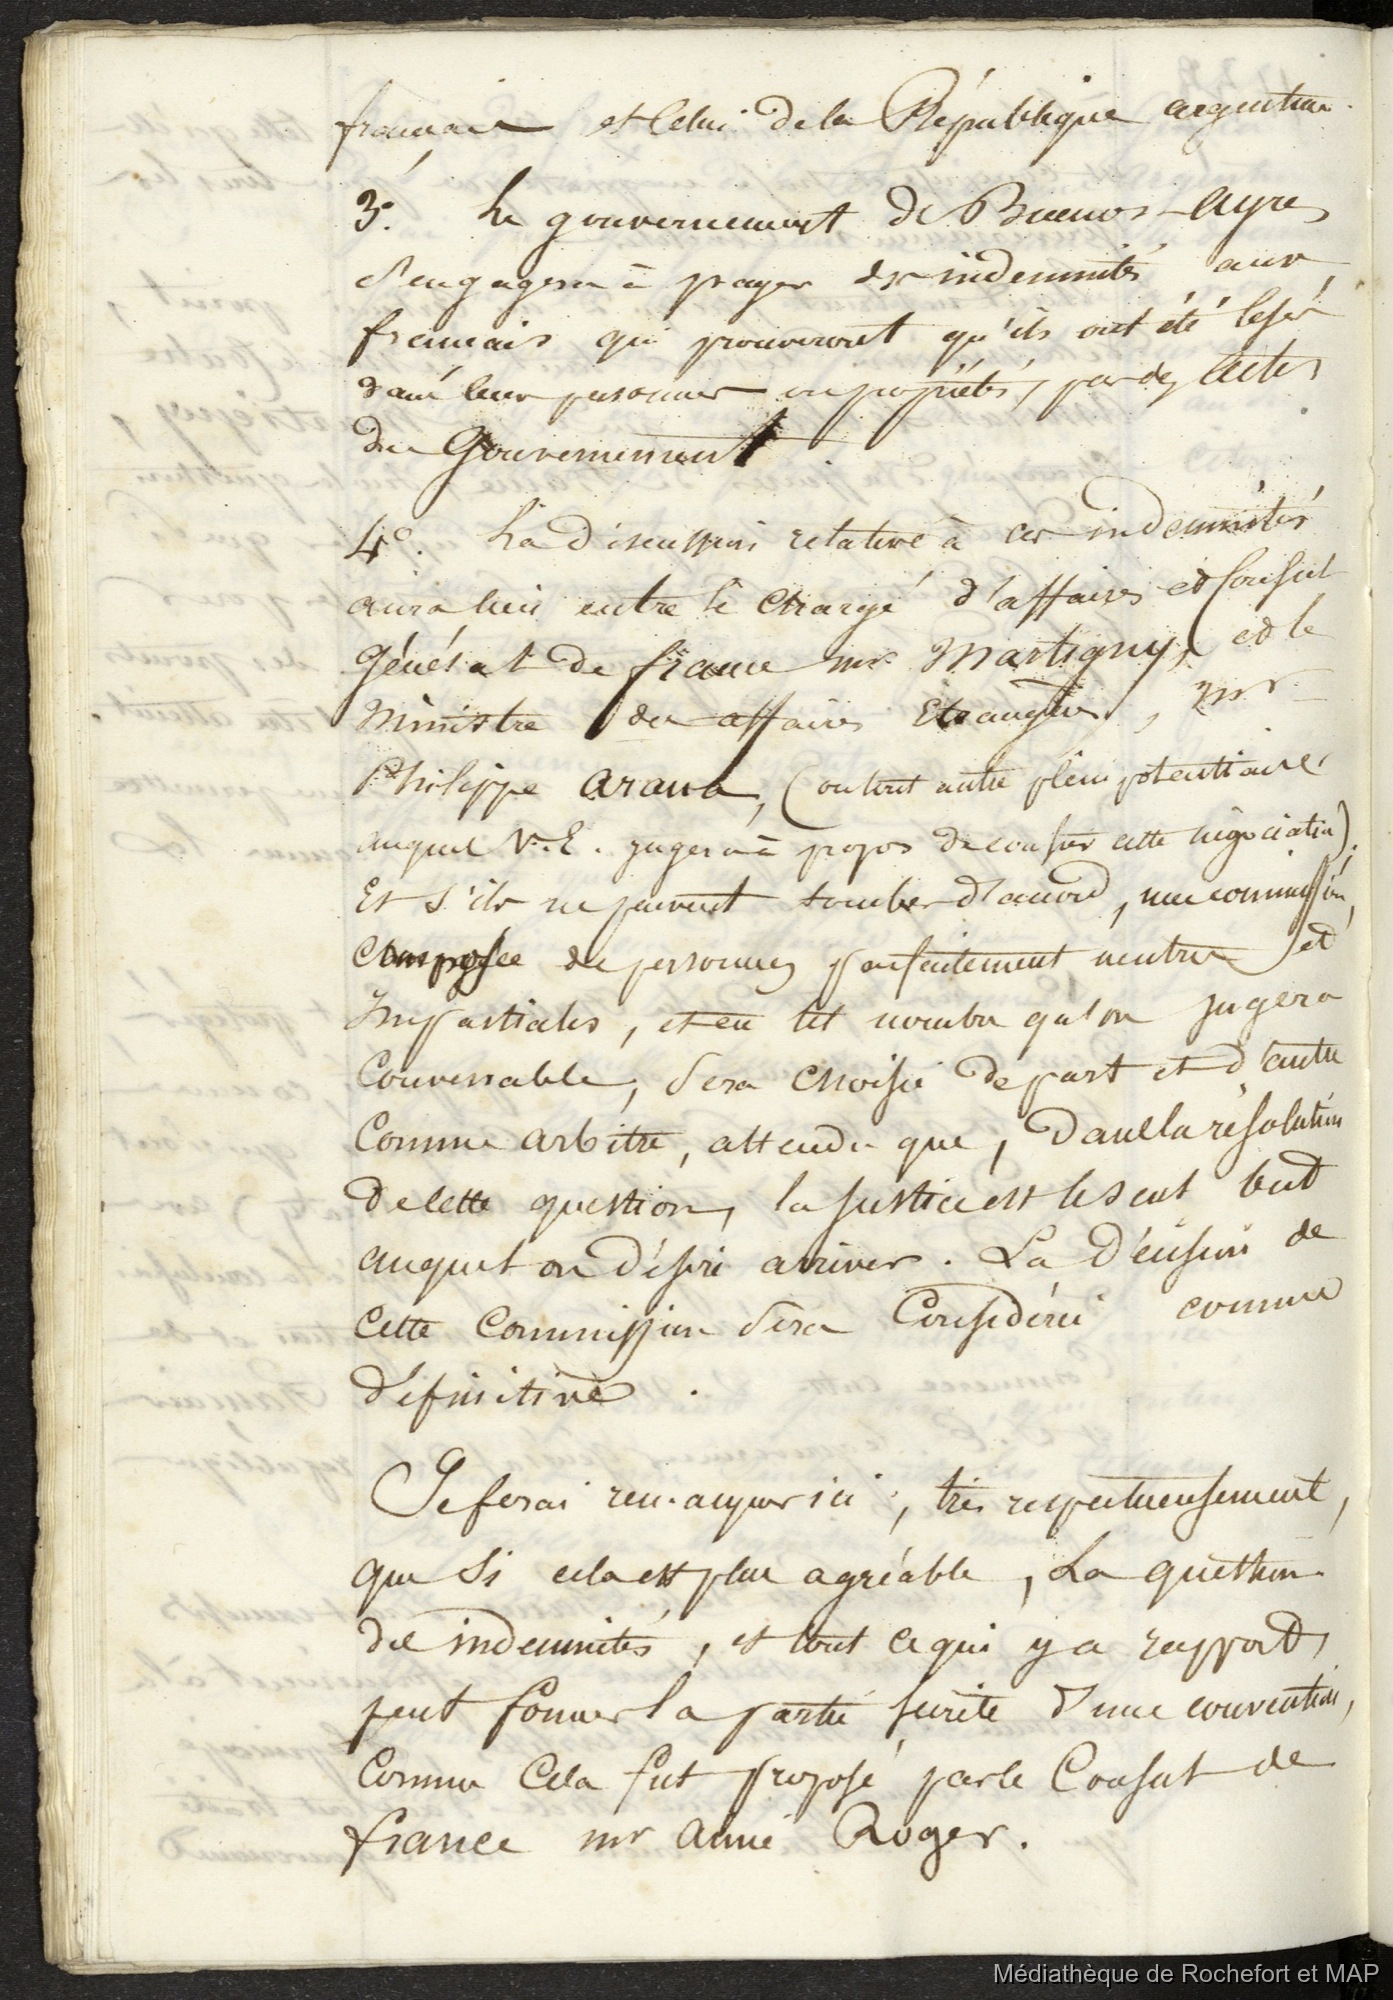 français et celui de la République argentine.
3°. Le gouvernement de Buenos-Ayres
s'engagera à payer des indemnités aux
français qui prouveront qu'ils ont été lésés
dans leurs personnes ou propriétés, par des actes
du Gouvernement.
4°. La discussion relative à ces indemnités
aura lieu entre le chargé d'affaires et Consul
Général de france mr. Martigny, et le
Ministre des affaires Etrangères, Mr.
Philippe Arana, (ou tout autre plénipotentiaire
auquel V. E. jugera à propos de confier cette négociation).
Et s'ils ne peuvent tomber d'accord, une commission,
Composée de personnes parfaitement neutres et
Impartiales, et en tel nombre qu'on jugera
Convenable, sera choisie de part et d'autre
Comme arbitre, attendu que, dans la résolution
de cette question, la justice est le seul but
auquel on désire arriver. La décision de
cette Commission sera Considérée comme
définitive.
Je ferai remarquer ici, très respectueusement,
que si cela est plus agréable, La question
des indemnités, et tout ce qui y a rapport,
peut former la partie secrète d'une convention,
Comme Cela fut proposé par le Consul de
france mr Aimé Roger.
Médiathèque de Rochefort et MAP